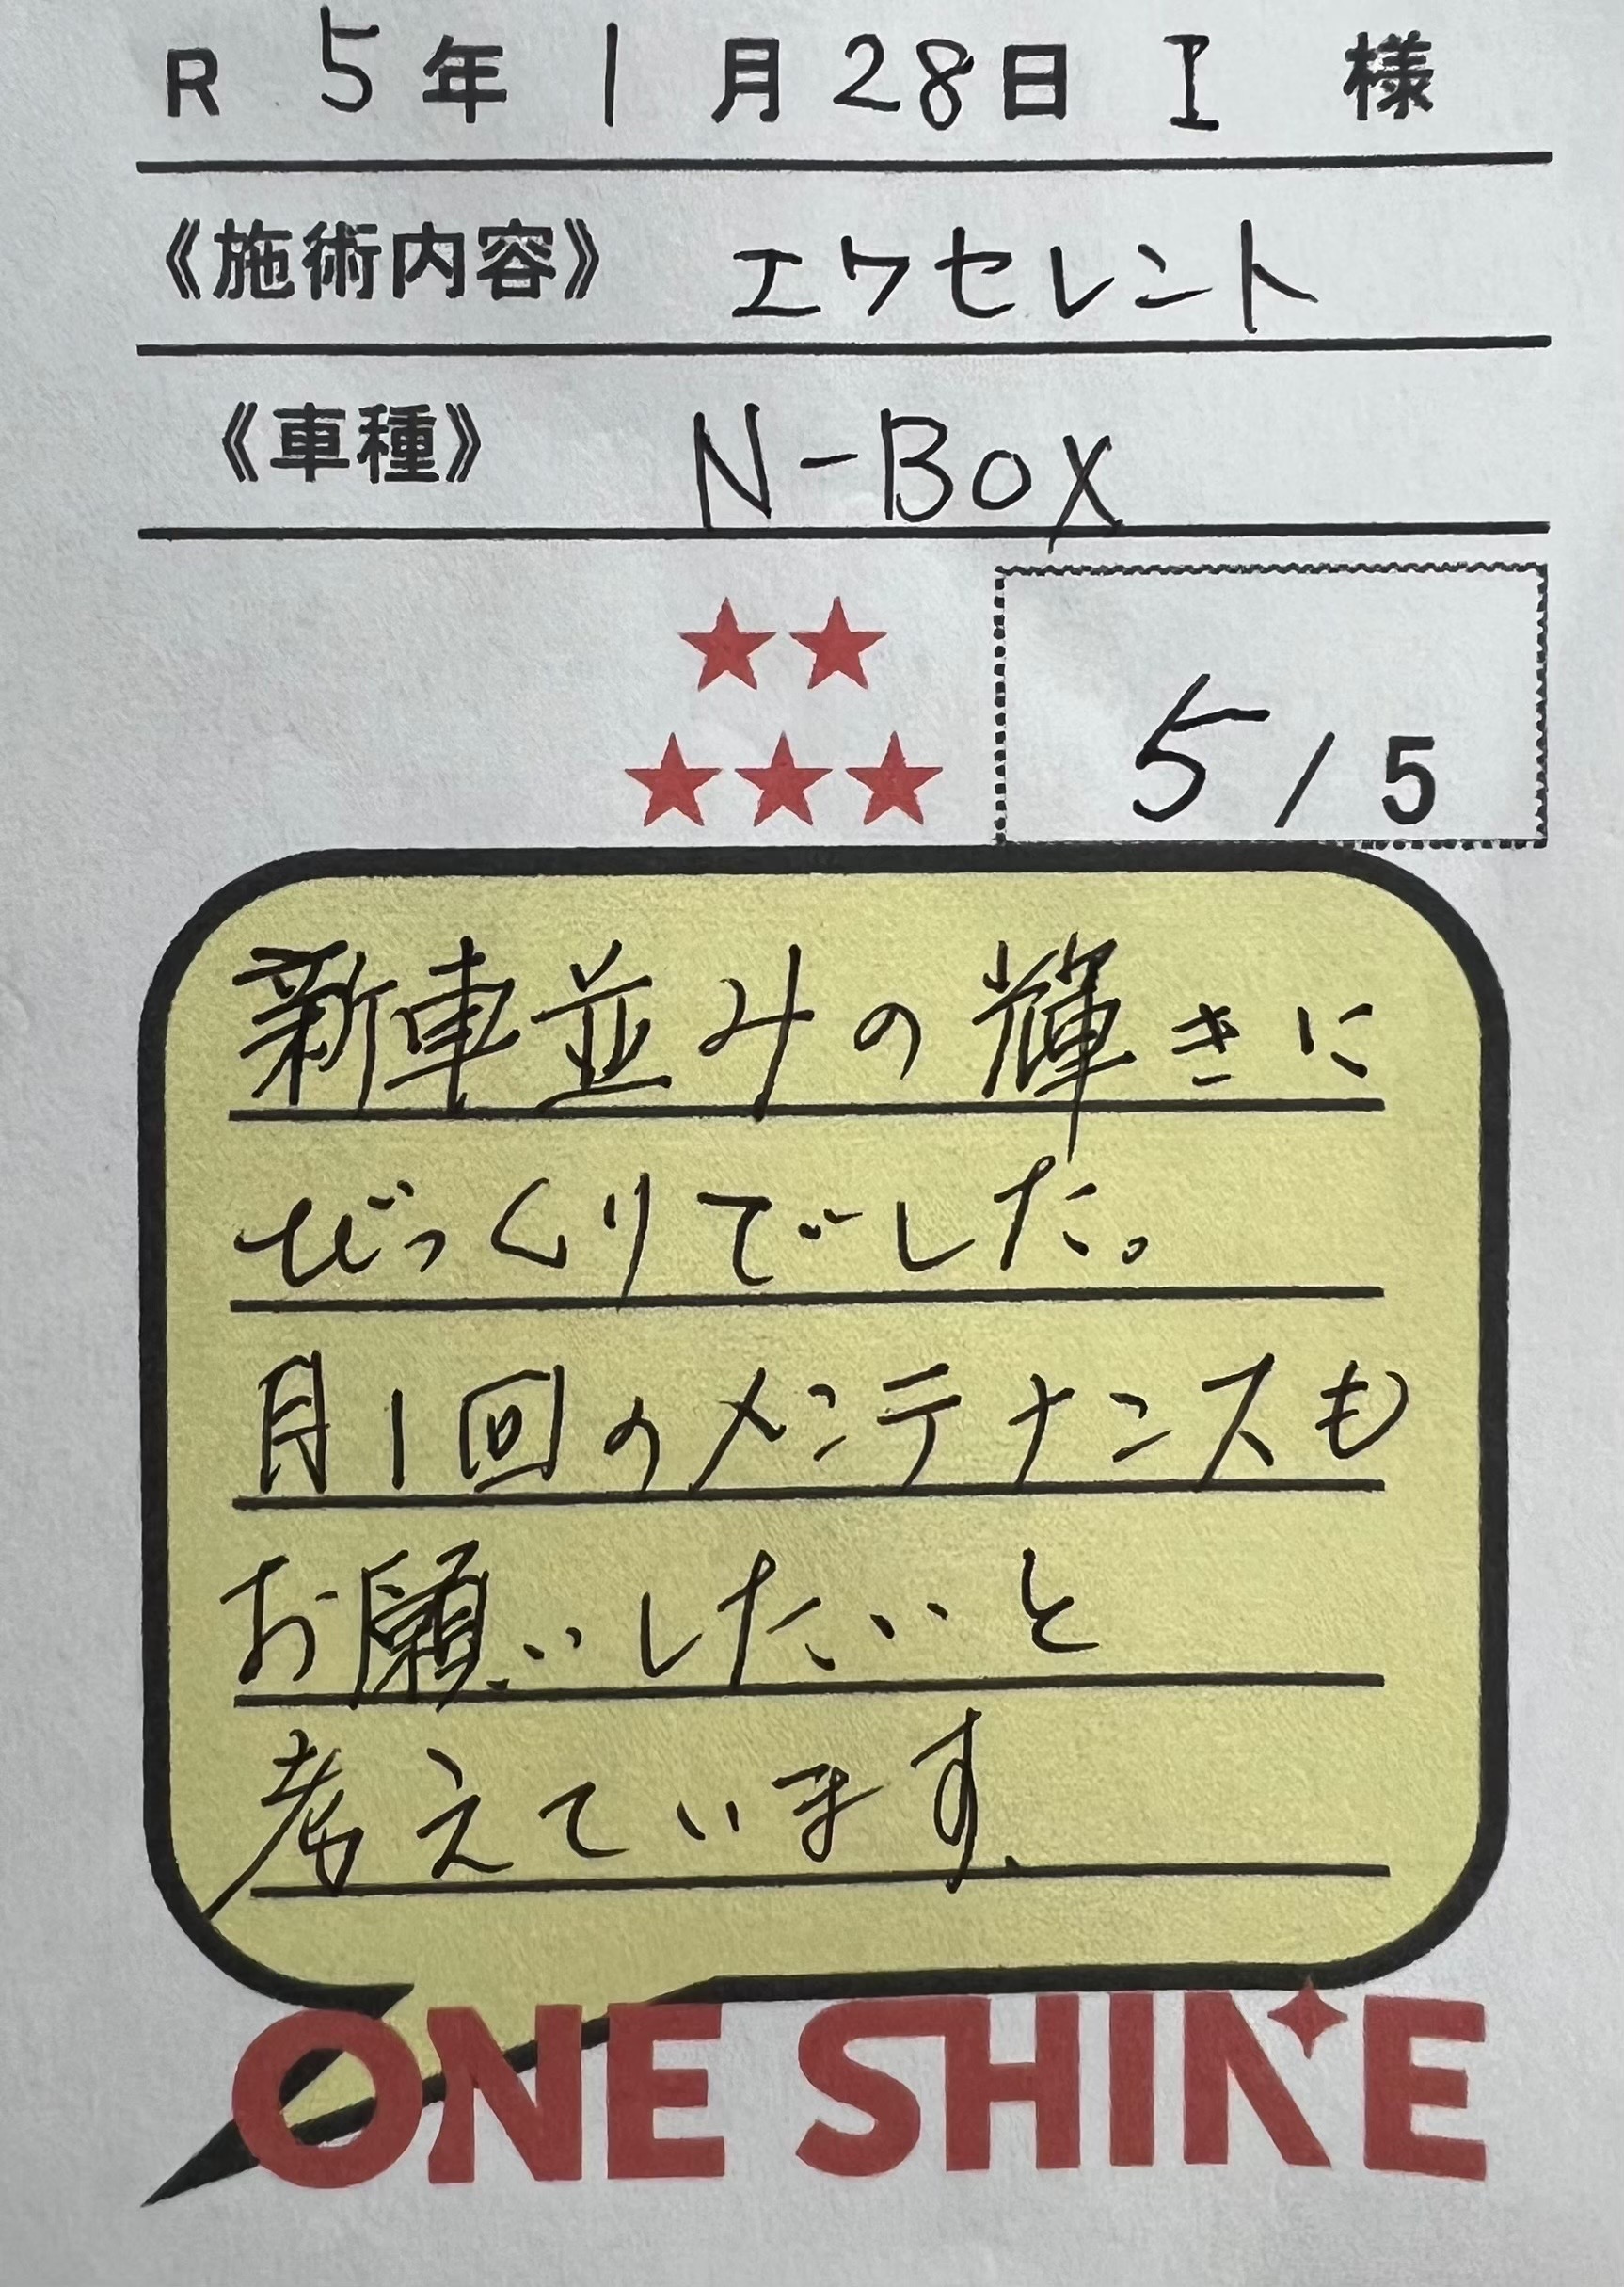 R 5年 1月28日 I 様
《施術内容》 エクセレント
《車種》 N-BOX
★★
★★★ 5/5
新車並みの輝きに
びっくりでした。
月1回のメンテナンスも
お願いしたいと
考えています。
ONE SHINE